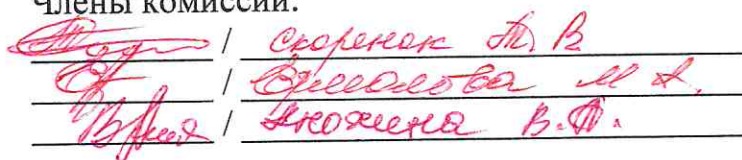 Члены комиссии:
/ Скоренок Т. В.
/ Ермолова М. А.
/ Анохина В. П.